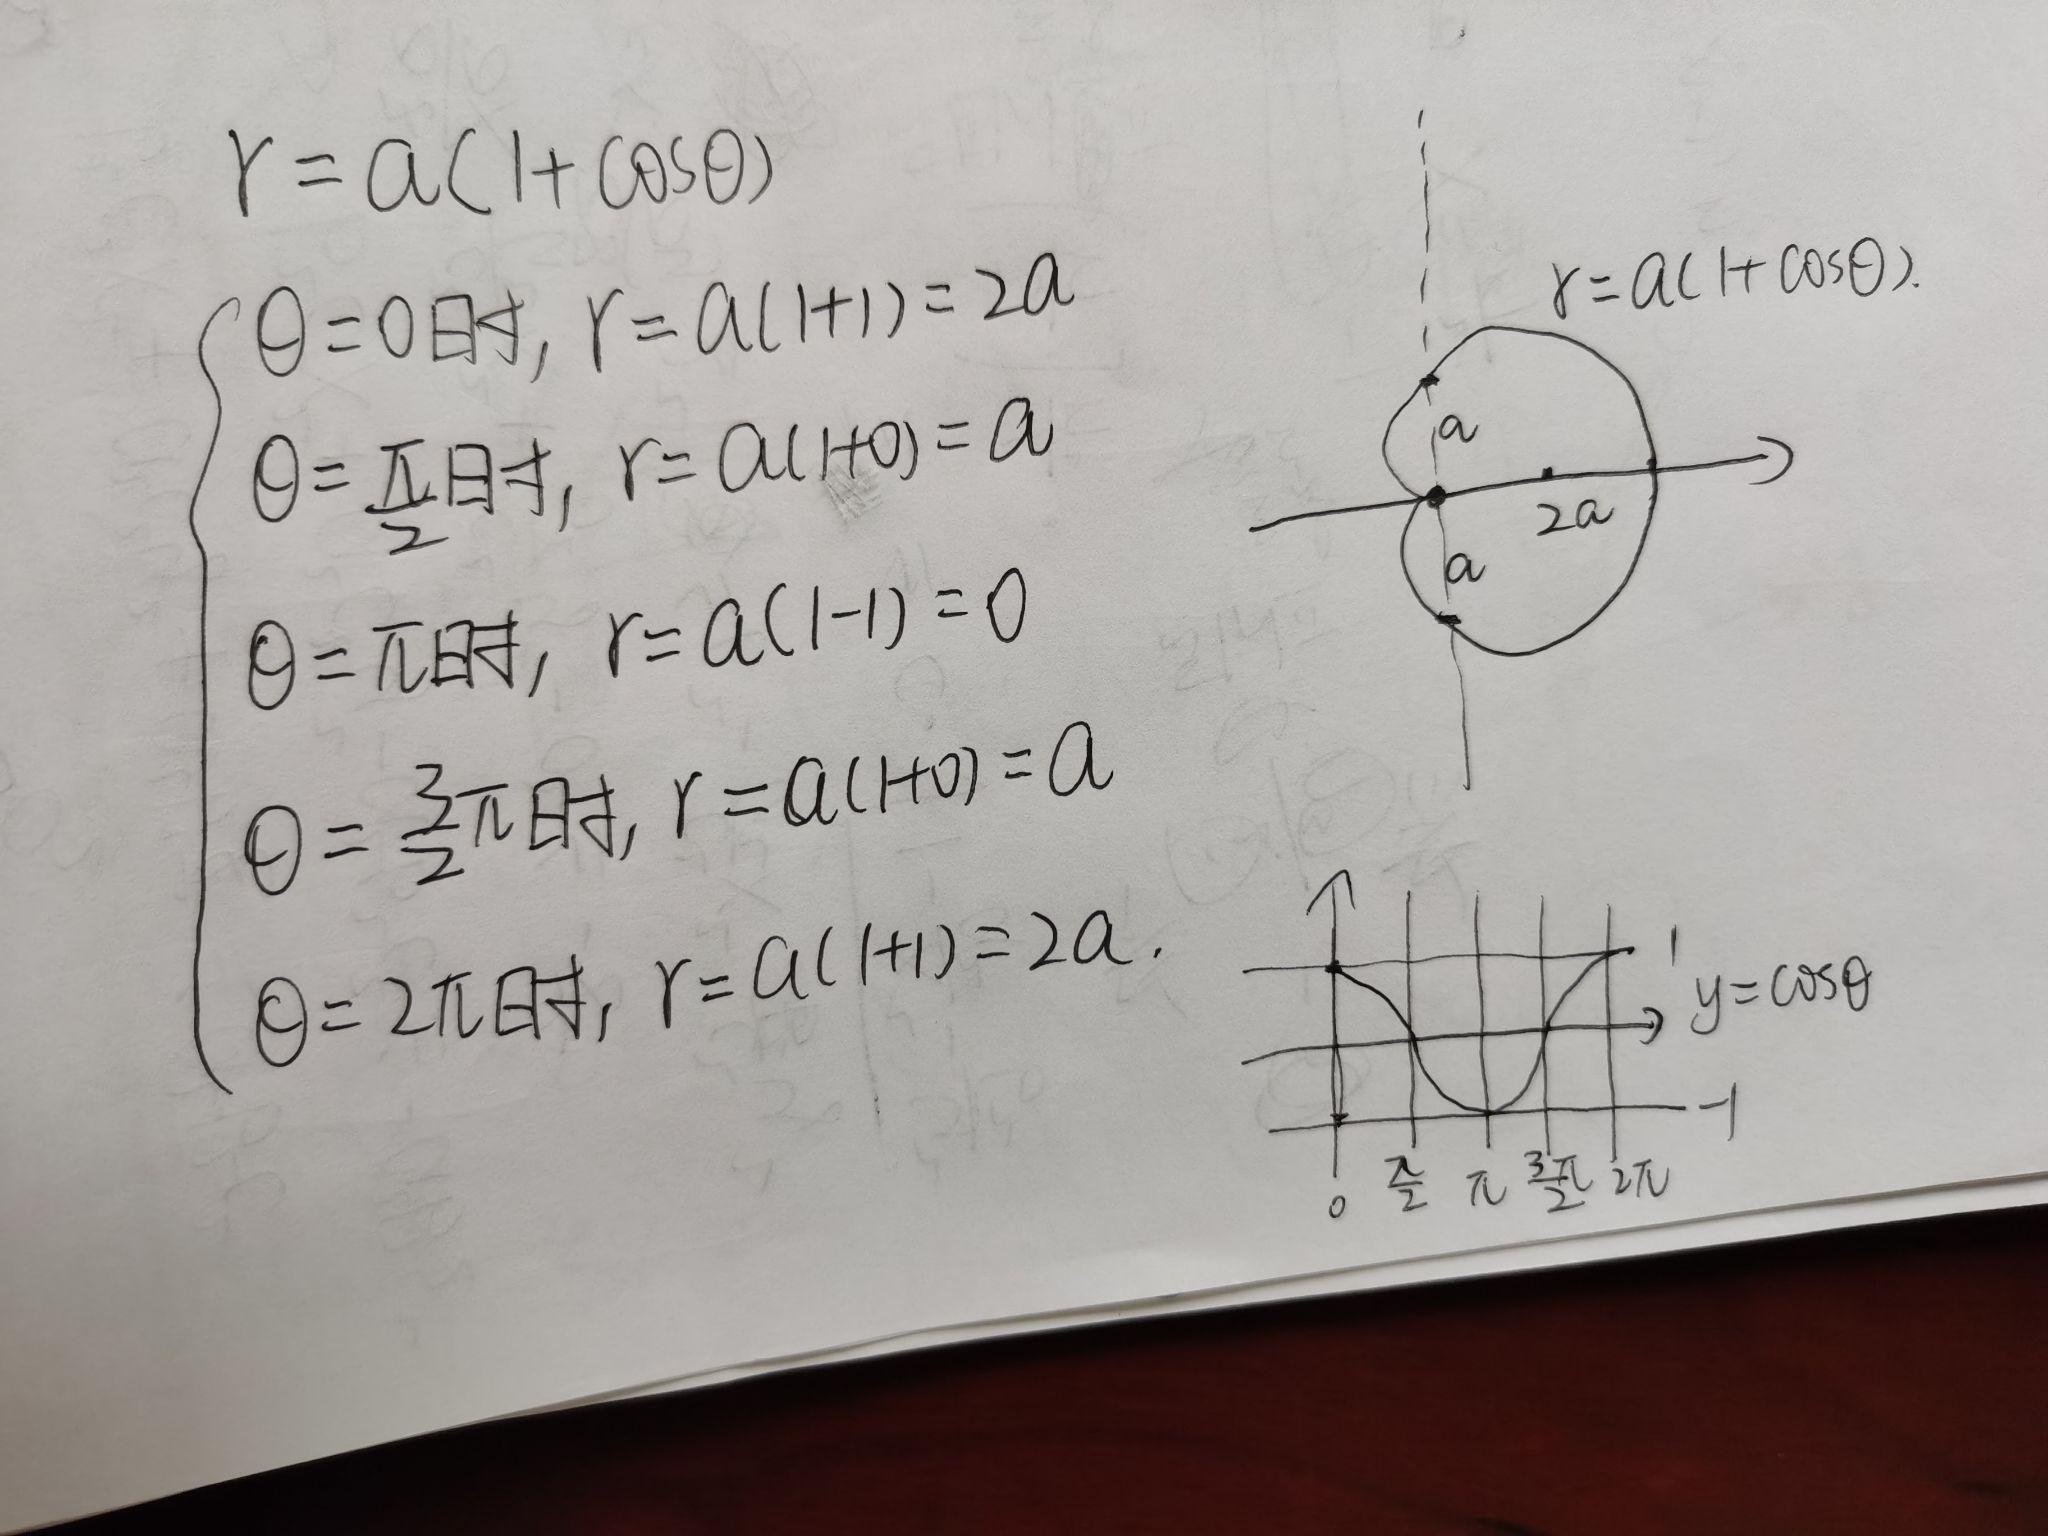 r=a(1+cosθ)
θ=0时, r=a(1+1)=2a
θ=π/2时, r=a(1+0)=a
θ=π时, r=a(1-1)=0
θ=3/2π时, r=a(1+0)=a
θ=2π时, r=a(1+1)=2a.
r=a(1+cosθ).
a
2a
a
1
y=cosθ
-1
0 π/2 π 3/2π 2π